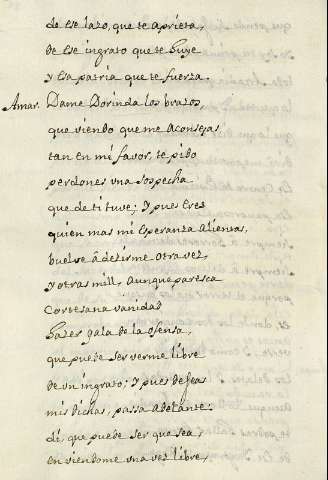 de ese lazo, que te aprieta,
de ese ingrato que te huye
y esa patria que te fuerza.
Amar. Dame Dorinda los brazos,
que viendo que me aconsejas
tan en mi favor, te pido
perdones vna sospecha
que de ti tuve; y pues eres
quien mas mi esperanza alientas,
buelve â dezirme otra vez,
y otras mill, aunque paresca
cortesana vanidad
hazer gala de la ofensa,
que puede ser verme libre
de vn ingrato; y pues deseas
mis dichas, passa adelante:
di, que puede ser que sea,
en viendome vna vez libre,